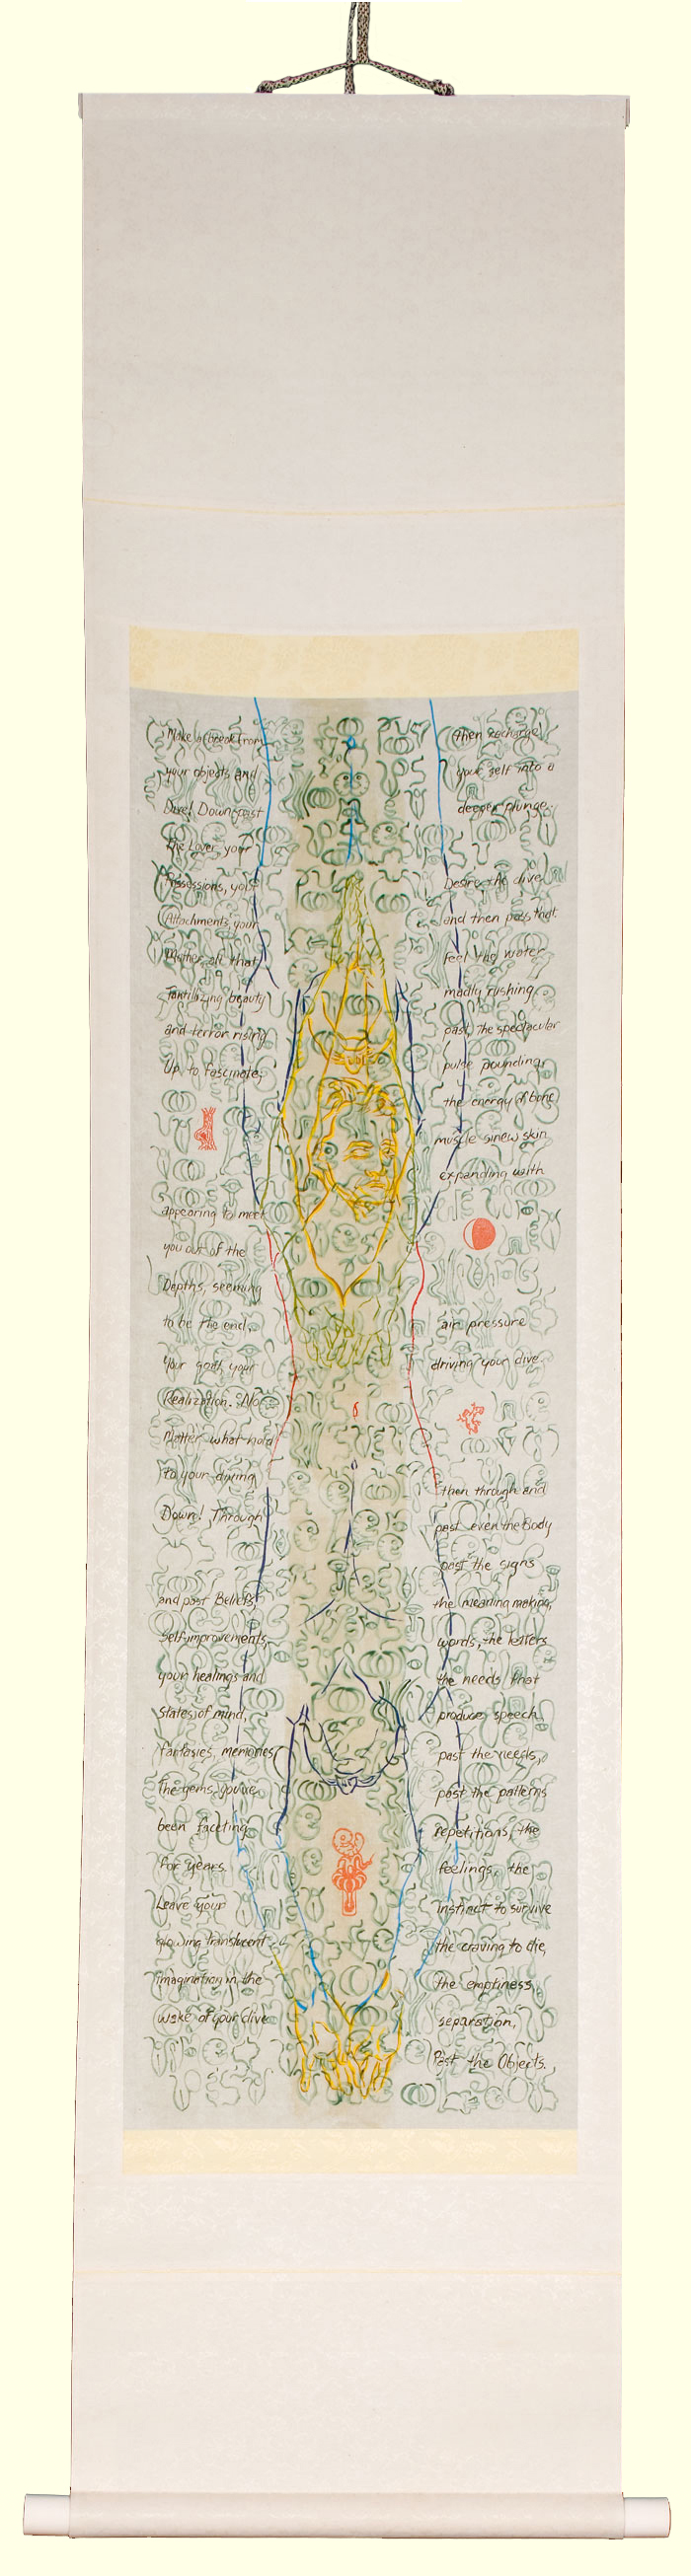 Make a break from
your objects and
Dive! Down past
the Lover, your
Possessions, your
Attachments, your
Mother, all that
Tantilizing beauty
and terror rising
Up to fascinate,
appearing to meet
you out of the
Depths, seeming
to be the end,
your goal, your
Realization. No
Matter what hold
to your diving
Down! Through
and past Beliefs,
self-improvements,
your healings and
states of mind,
fantasies, memories
The gems you've
been faceting
for years.
Leave your
glowing translucent
imagination in the
wake of your dive
then recharge
your self into a
deeper plunge.
Desire the dive
and then pass that.
feel the water
madly rushing
past, the spectacular
pulse pounding,
the energy of bone
muscle sinew skin
expanding with
air pressure
driving your dive.
then through and
past even the Body
past the signs
the meaning making,
words, the letters
the needs that
produce speech,
past the needs,
past the patterns
repetitions, the
feelings, the
instinct to survive
the craving to die,
the emptiness,
separation,
Past the Objects.